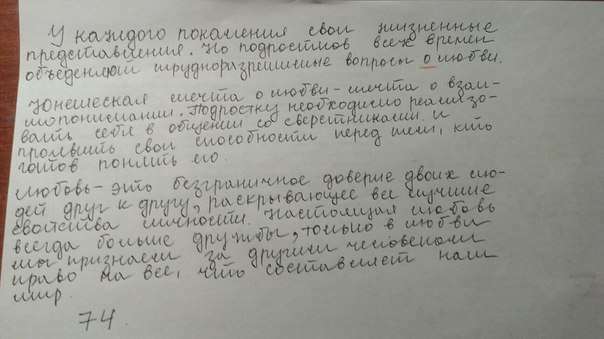 У каждого поколения свои жизненные
представления. Но подростков всех времен
объеденяют трудноразрешимые вопросы о любви.
Юношеская мечта о любви - мечта о взаи-
мопонимании. Подростку необходимо реализо-
вать себя в общении со сверстниками и
проявить свои способности перед теми, кто
готов понять его.
Любовь - это безграничное доверие двоих лю-
дей друг к другу, раскрывающее все лучшие
свойства личности. Настоящая любовь
всегда больше дружбы, только в любви
мы признаем за другим человеком
право на все, что составляет наш
мир.
74